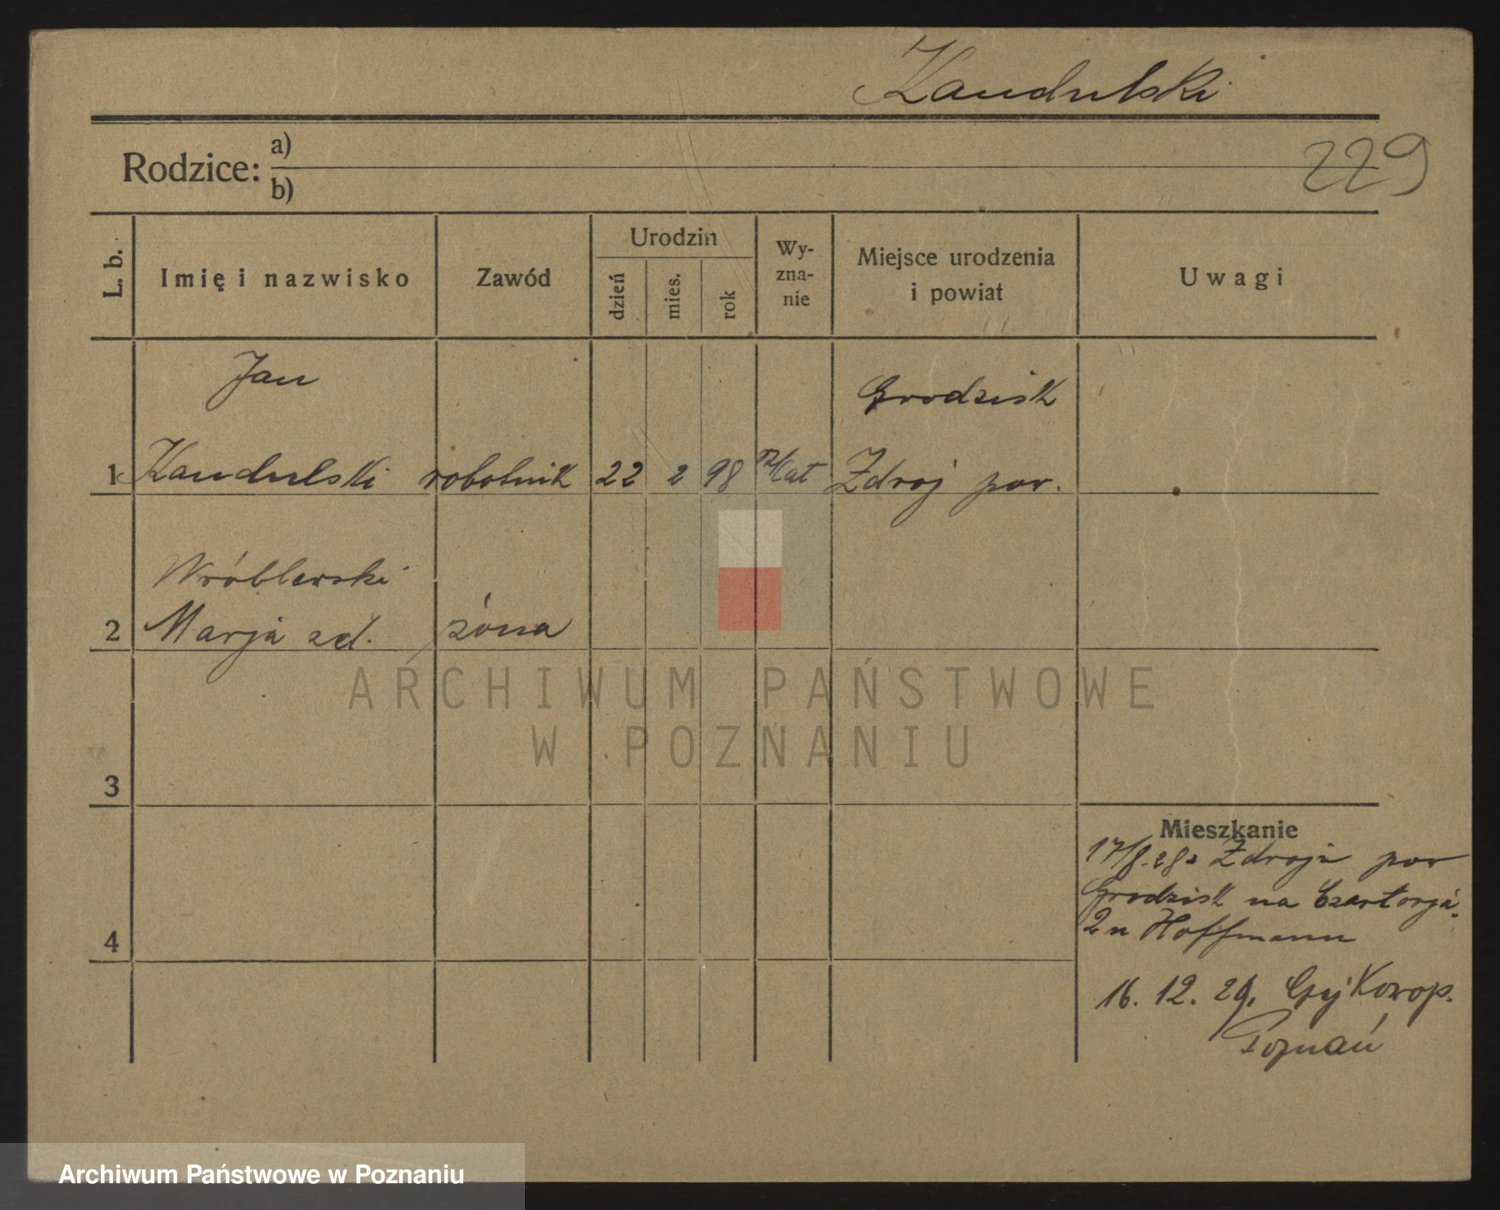 Kandulski
229
Rodzice: a)
b)
L. b.
Imię i nazwisko
Zawód
Urodzin
dzień
mies.
rok
Wy-
zna-
nie
Miejsce urodzenia
i powiat
Uwagi
Jan
Grodzisk
1 Kandulski robotnik 22 2 98 rz/kat Zdroj pow.
Wróblewski
2 Marja zd. żona
ARCHIWUM PAŃSTWOWE
W POZNANIU
3
Mieszkanie
17/8.28 z Zdroja pow
Grodzisk na Czartorja
2 u Hoffmann
4
16. 12. 29.
Poznań
Archiwum Państwowe w Poznaniu